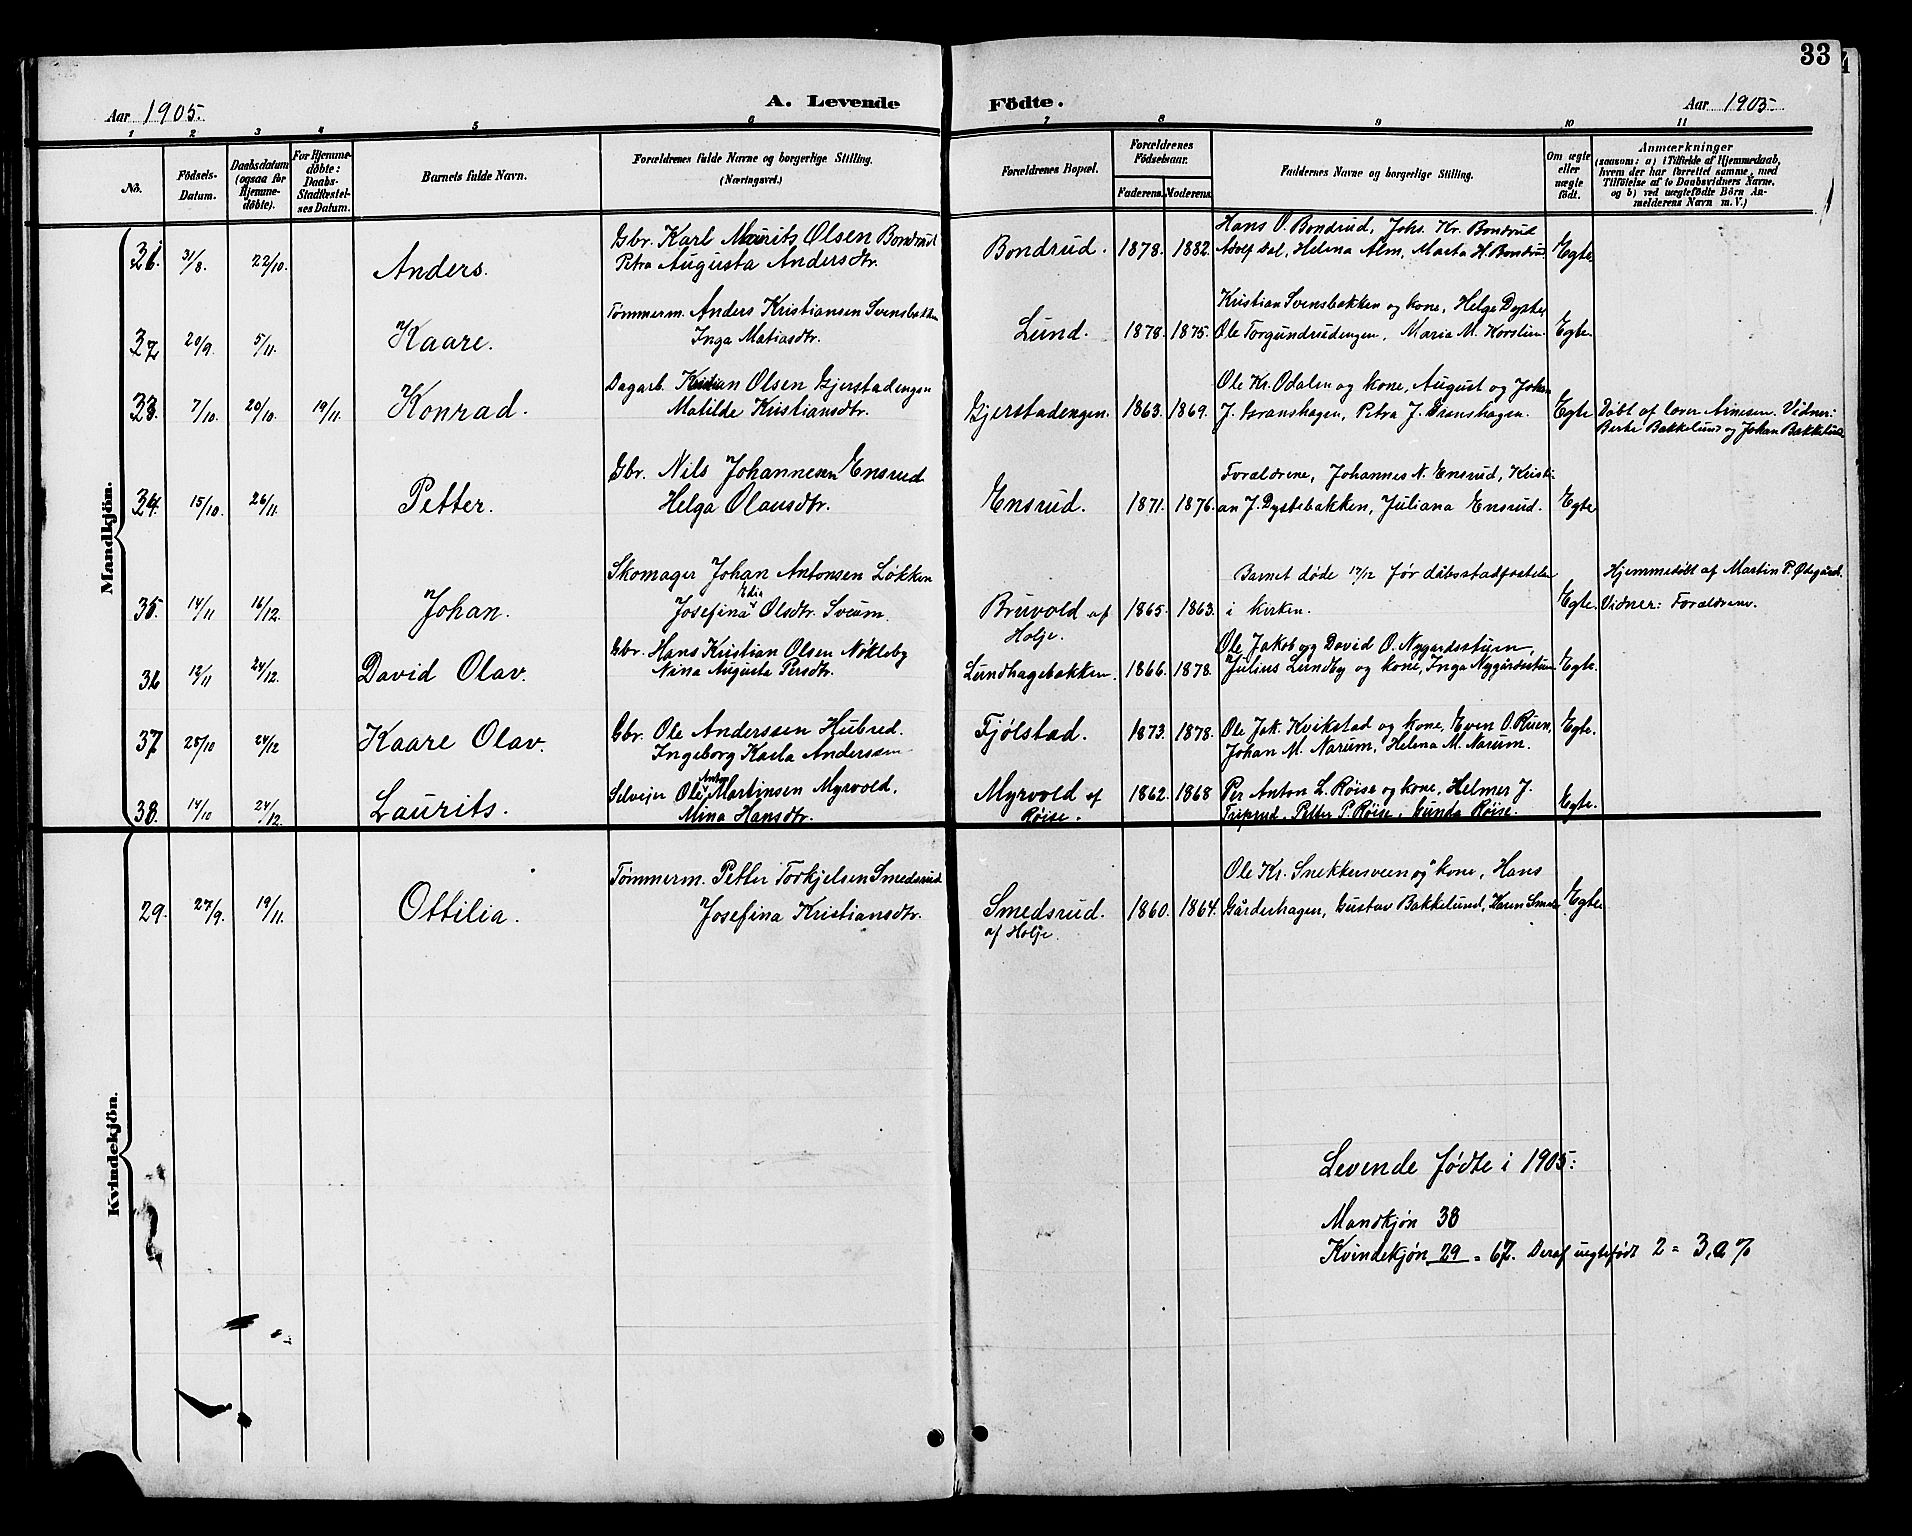 33
Aar 1905.
A. Levende Födte.
Aar 1905.
1 2 3 4 5 6 7 8 9 10 11
No.
Födsels-Datum.
Daabsdatum (ogsaa for Hjemme-döbte).
For Hjemme-döbte: Daabs-Stadfæstel-ses Datum.
Barnets fulde Navn.
Forældrenes fulde Navne og borgerlige Stilling.
(Næringsvei.)
Forældrenes Bopæl.
Forældrenes Födselsaar.
Faderens. Moderens.
Faddernes Navne og borgerlige Stilling.
Om ægte eller uægte födt.
Anmærkninger
(saasom: a) i Tilfælde af Hjemmedaab,
hvem der har forrettet samme, med
Tilföielse af to Daabsvidners Navne,
og b) ved uægtefödte Börn An-
melderens Navn m. V.)
Mandkjön.
31. 31/8. 22/10. Anders. Gbr. Karl Maurits Olsen Bondrud
Petra Augusta Andersdtr.
Bondrud. 1878. 1882. Hans O. Bondrud, Johs. Kr. Bondrud
Adolf Dal, Helena Alm, Marta H. Bondrud Egte.
32 20/9. 5/11. Kaare. Tømmerm. Anders Kristiansen Svensbakken
Inga Matiasdtr.
Lund. 1878. 1875. Kristian Svensbakken og kone, Helge Dyster
Ole Torgundrudengen, Maria M. Horslien. Egte.
33. 7/10. 20/10. 19/11. Konrad. Dagarb. Kristian Olsen Gjerstadengen
Matilde Kristiansdtr.
Gjerstadengen. 1863. 1869. Ole Kr. Odalen og kone, August og Johan
J. Granshagen, Petra J. Granshagen. Egte Døbt af lærer Arnesen. Vidner:
Berte Bakkelund og Johan Bakkelund
34. 15/10. 26/11. Petter. Gbr. Nils Johannesen Ensrud
Helga Olausdtr.
Ensrud. 1871. 1876. Forældrene, Johannes N. Ensrud, Kristi-
an J. Dystebakken, Juliana Ensrud. Egte
35. 14/11 16/12. Johan. Skomager Johan Antonsen Løkken
Josefina Edia Olsdtr. Sveum.
Bruvold af
Holje. 1865. 1863. Barnet døde 17/12 før dåbsstadfæstelse
i kirken. Egte. Hjemmedøbt af Martin P. Ødegård.
Vidner: Forældrene.
36 12/11 24/12. David Olav. Gbr. Hans Kristian Olsen Nøkleby
Nina Augusta Persdtr.
Lundhagebakken. 1866. 1878. Ole Jakob og David O. Nygardsstuen,
Julius Lundby og kone, Inga Nygårdsstuen Egte.
37 25/10 24/12 Kaare Olav. Gbr. Ole Anderssen Hubred.
Ingeborg Karla Anderssen
Fjølstad. 1873. 1878. Ole Jak. Kvikstad og kone, Even O. Ruen,
Johan M. Narum, Helena M. Narum. Egte.
38. 14/10 24/12. Laurits. Selveier Ole Anton Martinsen Myrvold.
Mina Hansdtr.
Myrvold af
Røise. 1862. 1868 Per Anton L. Røise og kone, Helmer J.
Petter P. Røise, Gunda Røise. Egte.
Kvindekjön.
29. 27/9. 19/11. Ottilia. Tømmerm. Petter Torkjelsen Smedsrud
Josefina Kristiansdtr.
Smedsrud.
af Holje. 1860. 1864. Ole Kr. Snekkersveen og kone, Hans
Gårderhagen, Gustav Bakkelund, Karen Egte
Levende fødte i 1905:
Mandkjøn 38
Kvindekjøn 29 = 67. Deraf uegtefødt 2 = 3,0 %